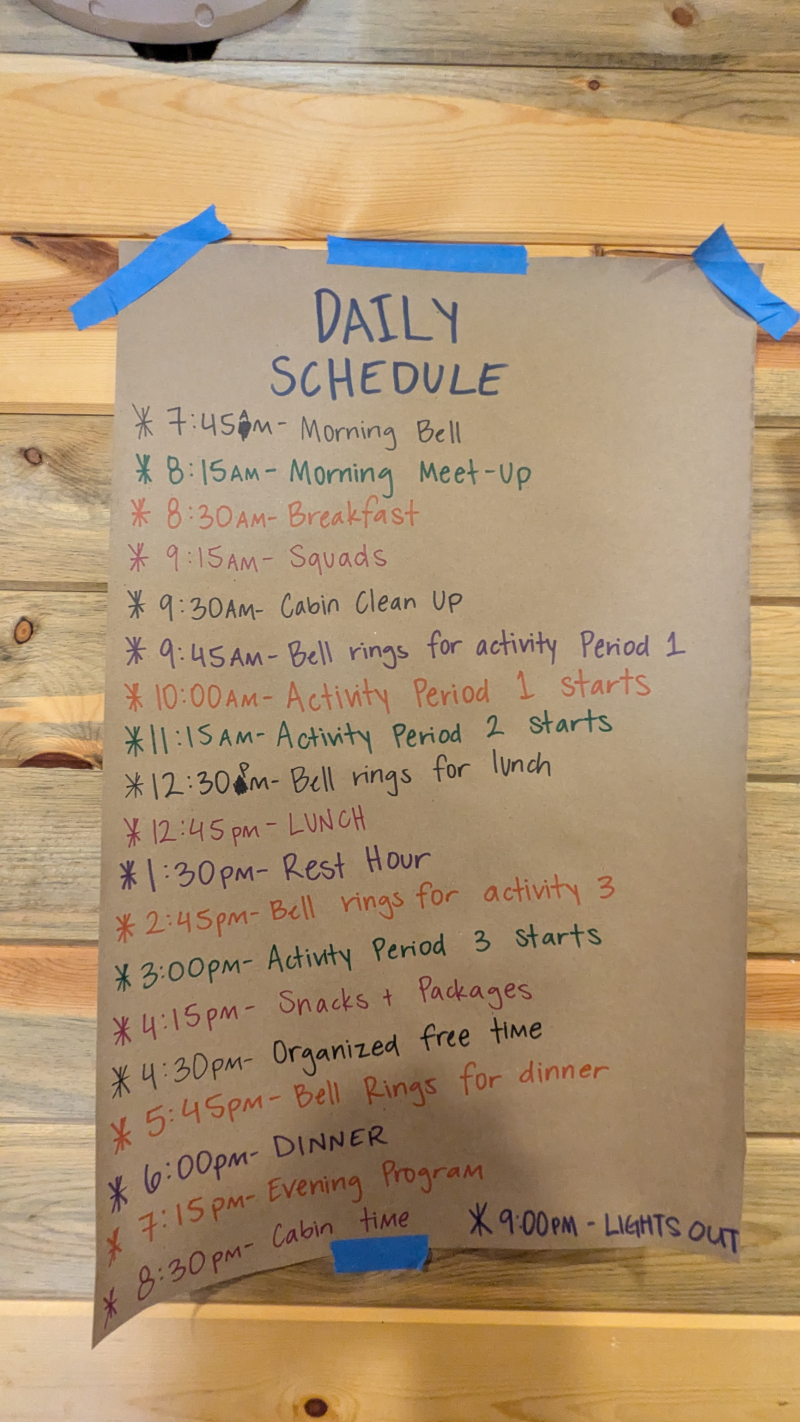 DAILY
SCHEDULE
* 7:45AM- Morning Bell
* 8:15AM- Morning Meet-Up
* 8:30AM- Breakfast
* 9:15AM- Squads
* 9:30AM- Cabin Clean Up
* 9:45AM- Bell rings for activity Period 1
* 10:00AM- Activity Period 1 starts
* 11:15AM- Activity Period 2 starts
* 12:30PM- Bell rings for lunch
* 12:45pm- LUNCH
* 1:30pm- Rest Hour
* 2:45pm- Bell rings for activity 3
* 3:00pm- Activity Period 3 starts
* 4:15pm- Snacks + Packages
* 4:30pm- Organized free time
* 5:45pm- Bell Rings for dinner
* 6:00pm- DINNER
* 7:15pm- Evening Program
* 8:30pm- Cabin time
* 9:00PM - LIGHTS OUT